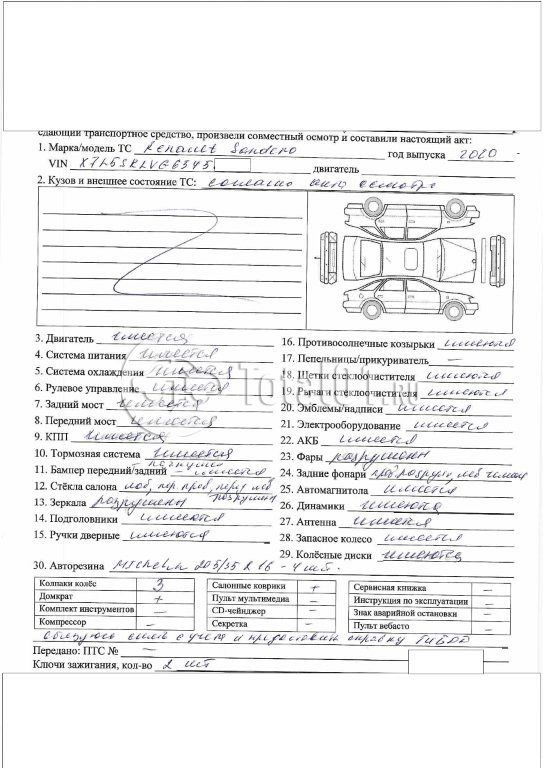 сдающий транспортное средство, произвели совместный осмотр и составили настоящий акт:
1. Марка/модель ТС Renault Sandero год выпуска 2020
VIN X7L5SRLVG6345 двигатель
2. Кузов и внешнее состояние ТС: согласно акта осмотра
3. Двигатель имеется
4. Система питания имеется
5. Система охлаждения имеется
6. Рулевое управление имеется
7. Задний мост имеется
8. Передний мост имеется
9. КПП имеется
10. Тормозная система имеется
11. Бампер передний/задний разрушен – имеется
12. Стёкла салона лоб, пер. прав, перед лев разрушены
13. Зеркала разрушены
14. Подголовники имеются
15. Ручки дверные имеются
16. Противосолнечные козырьки имеются
17. Пепельницы/прикуриватель –
18. Щетки стеклоочистителя имеются
19. Рычаги стеклоочистителя имеются
20. Эмблемы/надписи имеются
21. Электрооборудование имеется
22. АКБ имеется
23. Фары разрушены
24. Задние фонари лев
25. Автомагнитола имеется
26. Динамики имеются
27. Антенна имеется
28. Запасное колесо имеется
29. Колёсные диски имеются
30. Авторезина Michelin 205/55 R 16 – 4 шт.
Колпаки колёс 3 Салонные коврики + Сервисная книжка –
Домкрат + Пульт мультимедиа – Инструкция по эксплуатации –
Комплект инструментов – CD-чейнджер – Знак аварийной остановки –
Компрессор – Секретка – Пульт вебасто –
Обязуюсь снять с учета и предоставить справку ГИБДД
Передано: ПТС № –
Ключи зажигания, кол-во 2 шт
Total01.ru